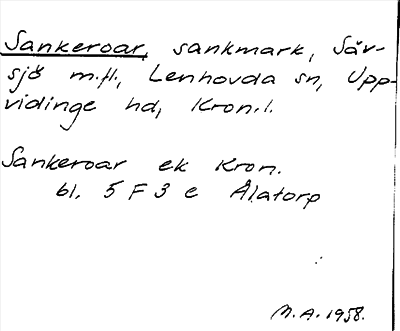 Sankeroar, sankmark, Säv-
sjö m.fl., Lenhovda sn, Upp-
vidinge hd, Kron.l.
Sankeroar ek Kron.
bl. 5 F 3 e Ålatorp
M.A. 1958.